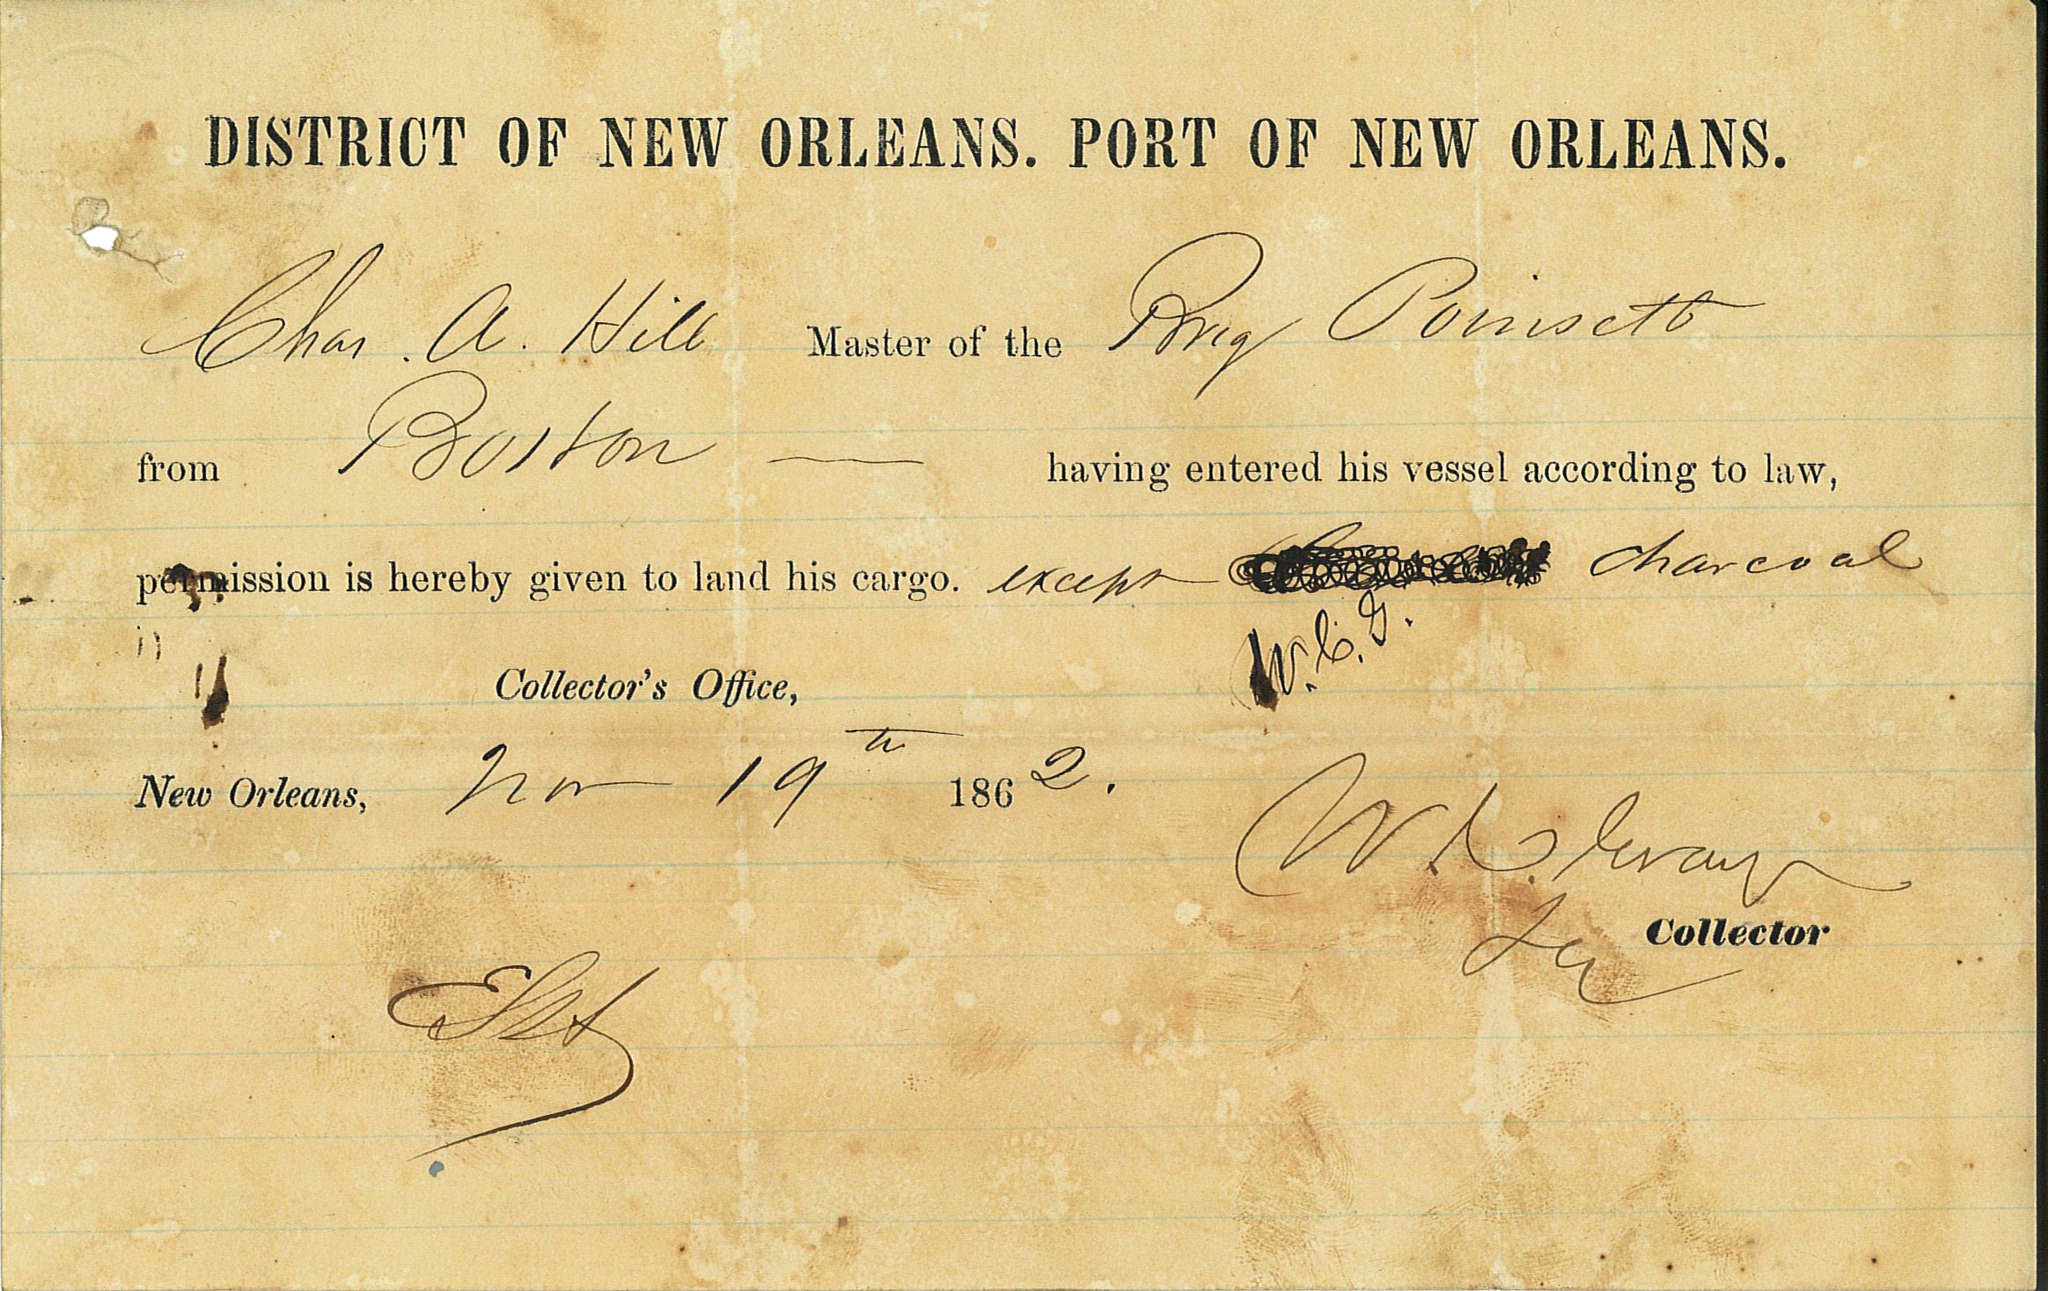 DISTRICT OF NEW ORLEANS. PORT OF NEW ORLEANS.
Chas. A. Hill Master of the Brig Poinsett
from Boston — having entered his vessel according to law,
permission is hereby given to land his cargo. except charcoal
W. C. G.
Collector's Office,
New Orleans, Nov 19th 1862.
W. C. Gray
Collector